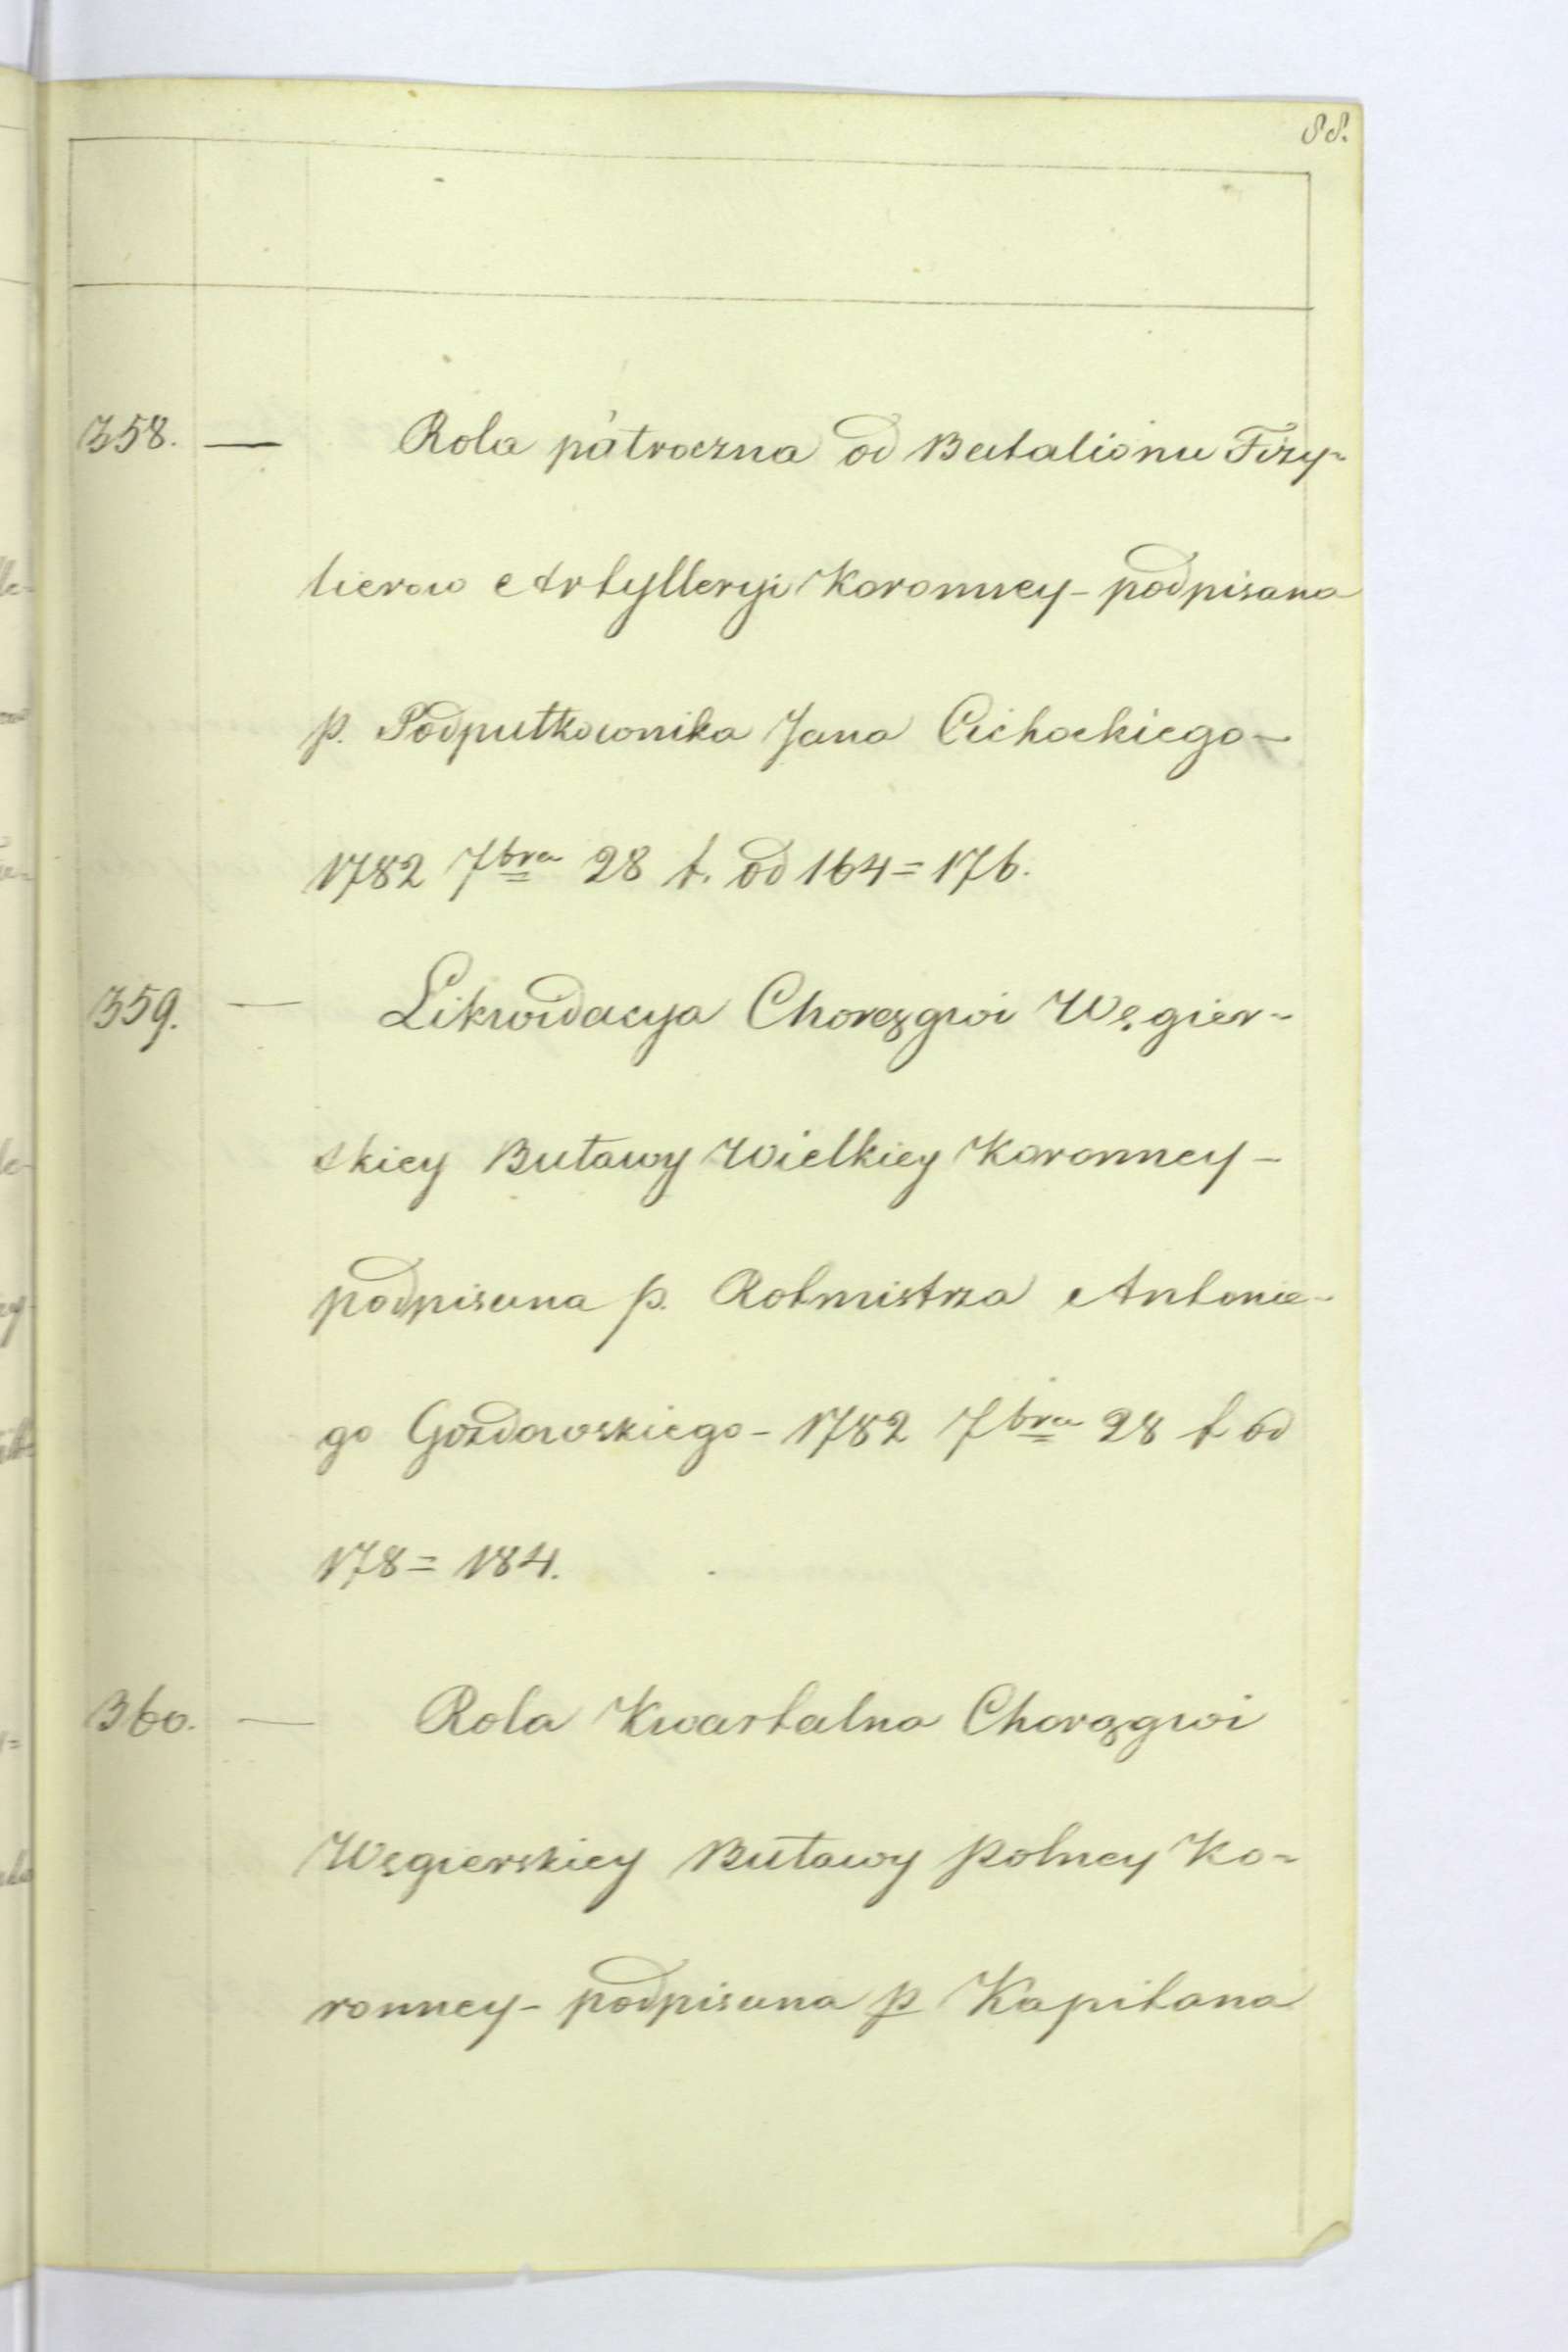 88.
358. — Rola pátroczna od Batalionu Fizy-
lierow Artylleryi Koronney - podpisana
p. Podpułkownika Jana Cichockiego -
1782 7bra 28 f. od 164 = 176.
359. — Likwidacya Chorągwi Węgier-
skiey Buławy Wielkiey Koronney -
podpisana p. Rotmistrza Antonie-
go Gozdowskiego - 1782 7bra 28 f od
178 = 184.
360. — Rola Kwartalna Chorągwi
Węgierskiey Buławy polney Ko-
ronney - podpisana p Kapitana